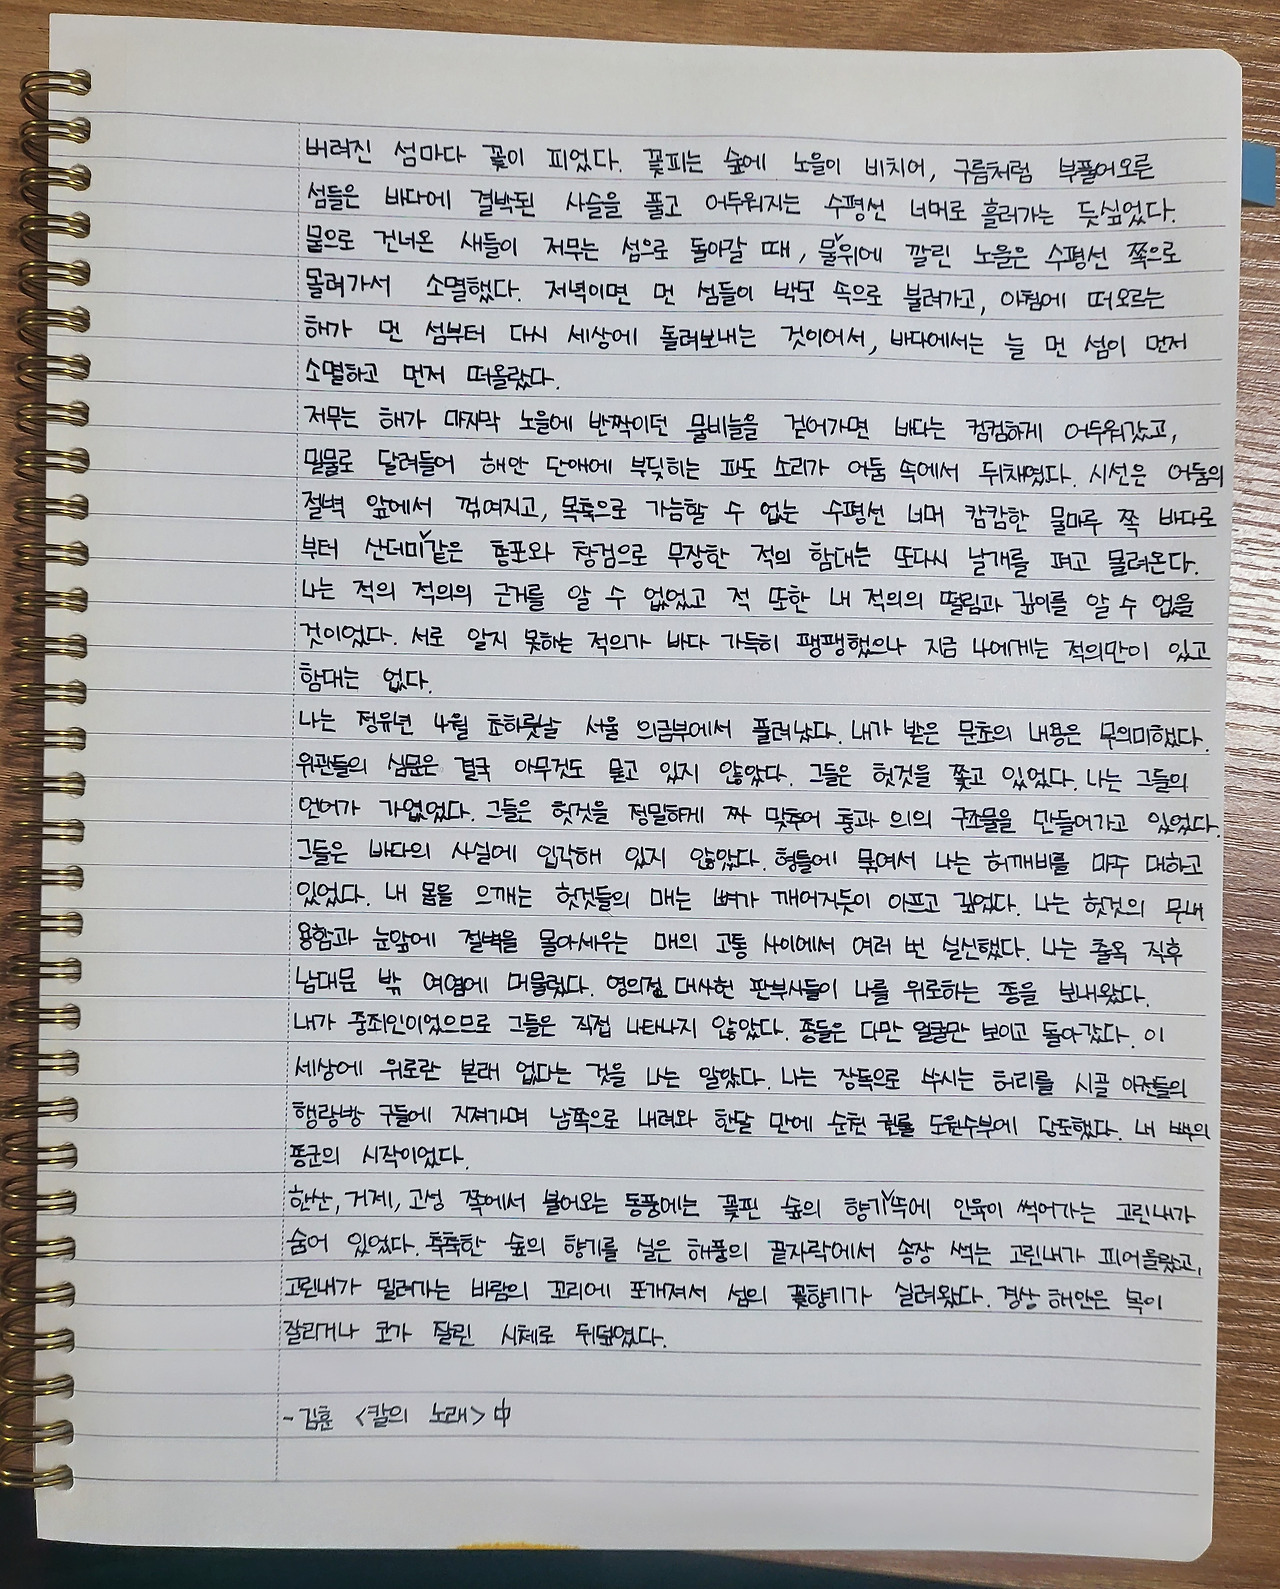 버려진 섬마다 꽃이 피었다. 꽃피는 숲에 노을이 비치어, 구름처럼 부풀어오른
섬들은 바다에 결박된 사슬을 풀고 어두워지는 수평선 너머로 흘러가는 듯싶었다.
뭍으로 건너온 새들이 저무는 섬으로 돌아갈 때, 물 위에 깔린 노을은 수평선 쪽으로
몰려가서 소멸했다. 저녁이면 먼 섬들이 박모 속으로 불려가고, 아침에 떠오르는
해가 먼 섬부터 다시 세상에 돌려보내는 것이어서, 바다에서는 늘 먼 섬이 먼저
소멸하고 먼저 떠올랐다.
저무는 해가 마지막 노을에 반짝이던 물비늘을 걷어가면 바다는 컴컴하게 어두워갔고,
밀물로 달려들어 해안 단애에 부딪히는 파도 소리가 어둠 속에서 뒤채였다. 시선은 어둠의
절벽 앞에서 꺾여지고, 목측으로 가늠할 수 없는 수평선 너머 캄캄한 물마루 쪽 바다로
부터 산더미 같은 총포와 창검으로 무장한 적의 함대는 또다시 날개를 펴고 몰려온다.
나는 적의 적의의 근거를 알 수 없었고 적 또한 내 적의의 떨림과 깊이를 알 수 없을
것이었다. 서로 알지 못하는 적의가 바다 가득히 팽팽했으나 지금 나에게는 적의만이 있고
함대는 없다.
나는 정유년 4월 초하룻날 서울 의금부에서 풀려났다. 내가 받은 문초의 내용은 무의미했다.
위관들의 심문은 결국 아무것도 묻고 있지 않았다. 그들은 헛것을 쫓고 있었다. 나는 그들의
언어가 가엾었다. 그들은 헛것을 정밀하게 짜 맞추어 충과 의의 구조물을 만들어가고 있었다.
그들은 바다의 사실에 입각해 있지 않았다. 형틀에 묶여서 나는 허깨비를 마주 대하고
있었다. 내 몸을 으깨는 헛것들의 매는 뼈가 깨어지듯이 아프고 깊었다. 나는 헛것의 무내
용함과 눈앞에 절벽을 몰아세우는 매의 고통 사이에서 여러 번 실신했다. 나는 출옥 직후
남대문 밖 여염에 머물렀다. 영의정 대사헌 판부사들이 나를 위로하는 종을 보내왔다.
내가 중죄인이었으므로 그들은 직접 나타나지 않았다. 종들은 다만 얼굴만 보이고 돌아갔다. 이
세상에 위로란 본래 없다는 것을 나는 알았다. 나는 장독으로 쑤시는 허리를 시골 아전들의
행랑방 구들에 지져가며 남쪽으로 내려와 한달 만에 순천 권률 도원수부에 당도했다. 내 백의
종군의 시작이었다.
한산, 거제, 고성 쪽에서 불어오는 동풍에는 꽃핀 숲의 향기 뚝에 인육이 썩어가는 고린내가
숨어 있었다. 축축한 숲의 향기를 실은 해풍의 끝자락에서 송장 썩는 고린내가 피어올랐고,
고린내가 밀려가는 바람의 꼬리에 포개져서 섬의 꽃향기가 실려왔다. 경상 해안은 목이
잘리거나 코가 잘린 시체로 뒤덮였다.
- 김훈 <칼의 노래> 中